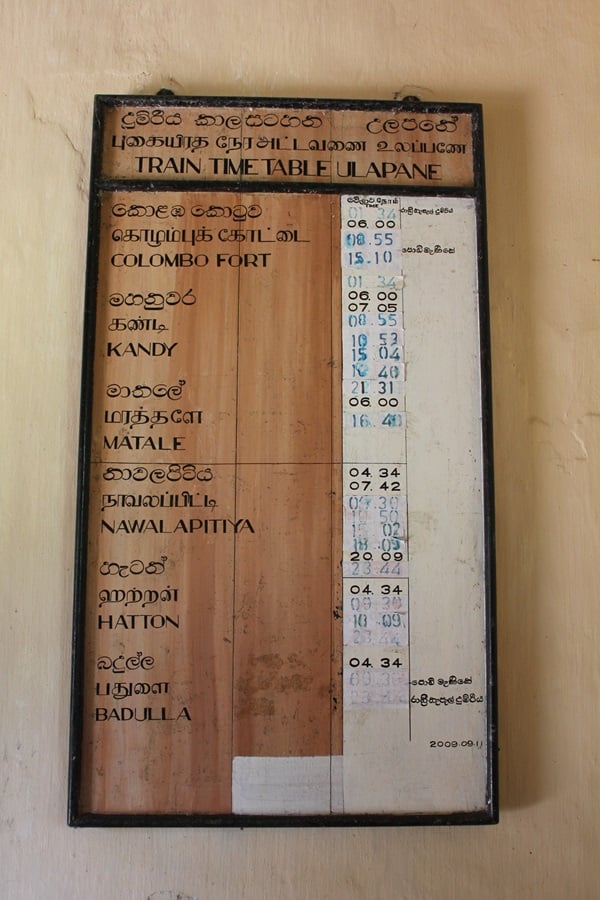 දුම්රිය කාලසටහන උලපනේ
புகையிரத நேரஅட்டவணை உலப்பணே
TRAIN TIME TABLE ULAPANE
කොළඹ කොටුව
கொழும்புக் கோட்டை
COLOMBO FORT
01 34 රාත්‍රී තැපැල් දුම්රිය
06.00
08.55 පොඩි මැණිකේ
15.10
මහනුවර
கண்டி
KANDY
01 34
06.00
07.05
08 55
10 53
15 04
16 40
21 31
මාතලේ
மாத்தளே
MATALE
06.00
16.40
නාවලපිටිය
நாவலப்பிட்டி
NAWALAPITIYA
04.34
07.42
09 30
18 09
20.09
23 44
හැටන්
ஹற்றன்
HATTON
04.34
09 30
18 09
23 44
බදුල්ල
பதுளை
BADULLA
04.34
09 30 පොඩි මැණිකේ
රාත්‍රී තැපැල් දුම්රිය
2009.09.11